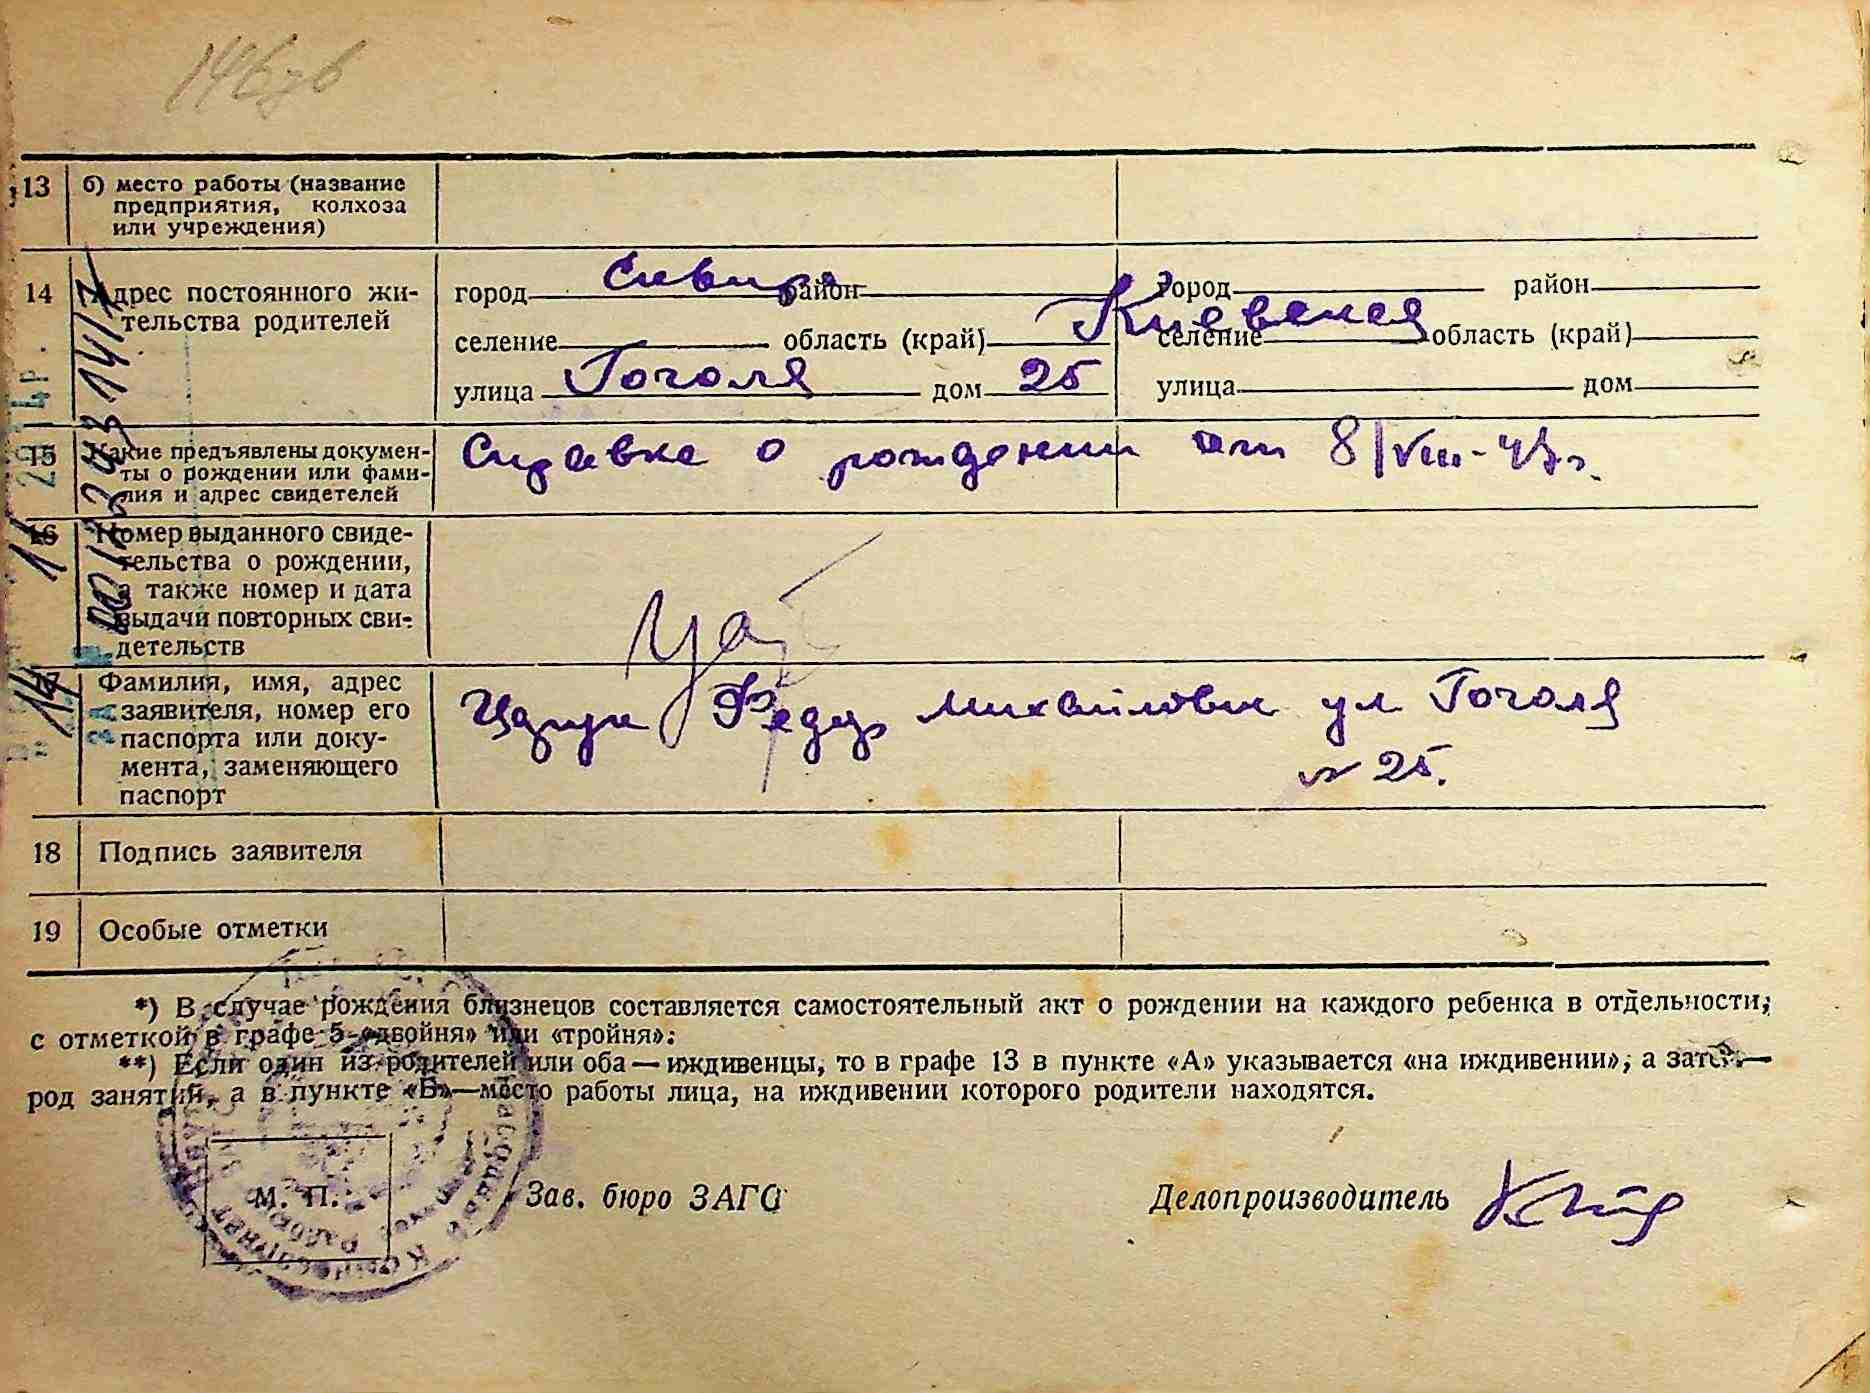 13 б) место работы (название
предприятия, колхоза
или учреждения)
14 Адрес постоянного жи-
тельства родителей
город район
селение область (край) Киевская
улица Гоголя дом 25
город район
селение область (край)
улица дом
15 Какие предъявлены докумен-
ты о рождении или фами-
лия и адрес свидетелей
Справка о рождении от 8/VIII-43г.
16 Номер выданного свиде-
тельства о рождении,
а также номер и дата
выдачи повторных сви-
детельств
17 Фамилия, имя, адрес
заявителя, номер его
паспорта или доку-
мента, заменяющего
паспорт
Михайлович ул Гоголя
№ 25.
18 Подпись заявителя
19 Особые отметки
*) В случае рождения близнецов составляется самостоятельный акт о рождении на каждого ребенка в отдельности,
с отметкой в графе 5 «двойня» или «тройня».
**) Если один из родителей или оба — иждивенцы, то в графе 13 в пункте «А» указывается «на иждивении», а затем—
род занятий, а в пункте «Б»—место работы лица, на иждивении которого родители находятся.
М. П.
Зав. бюро ЗАГС
Делопроизводитель